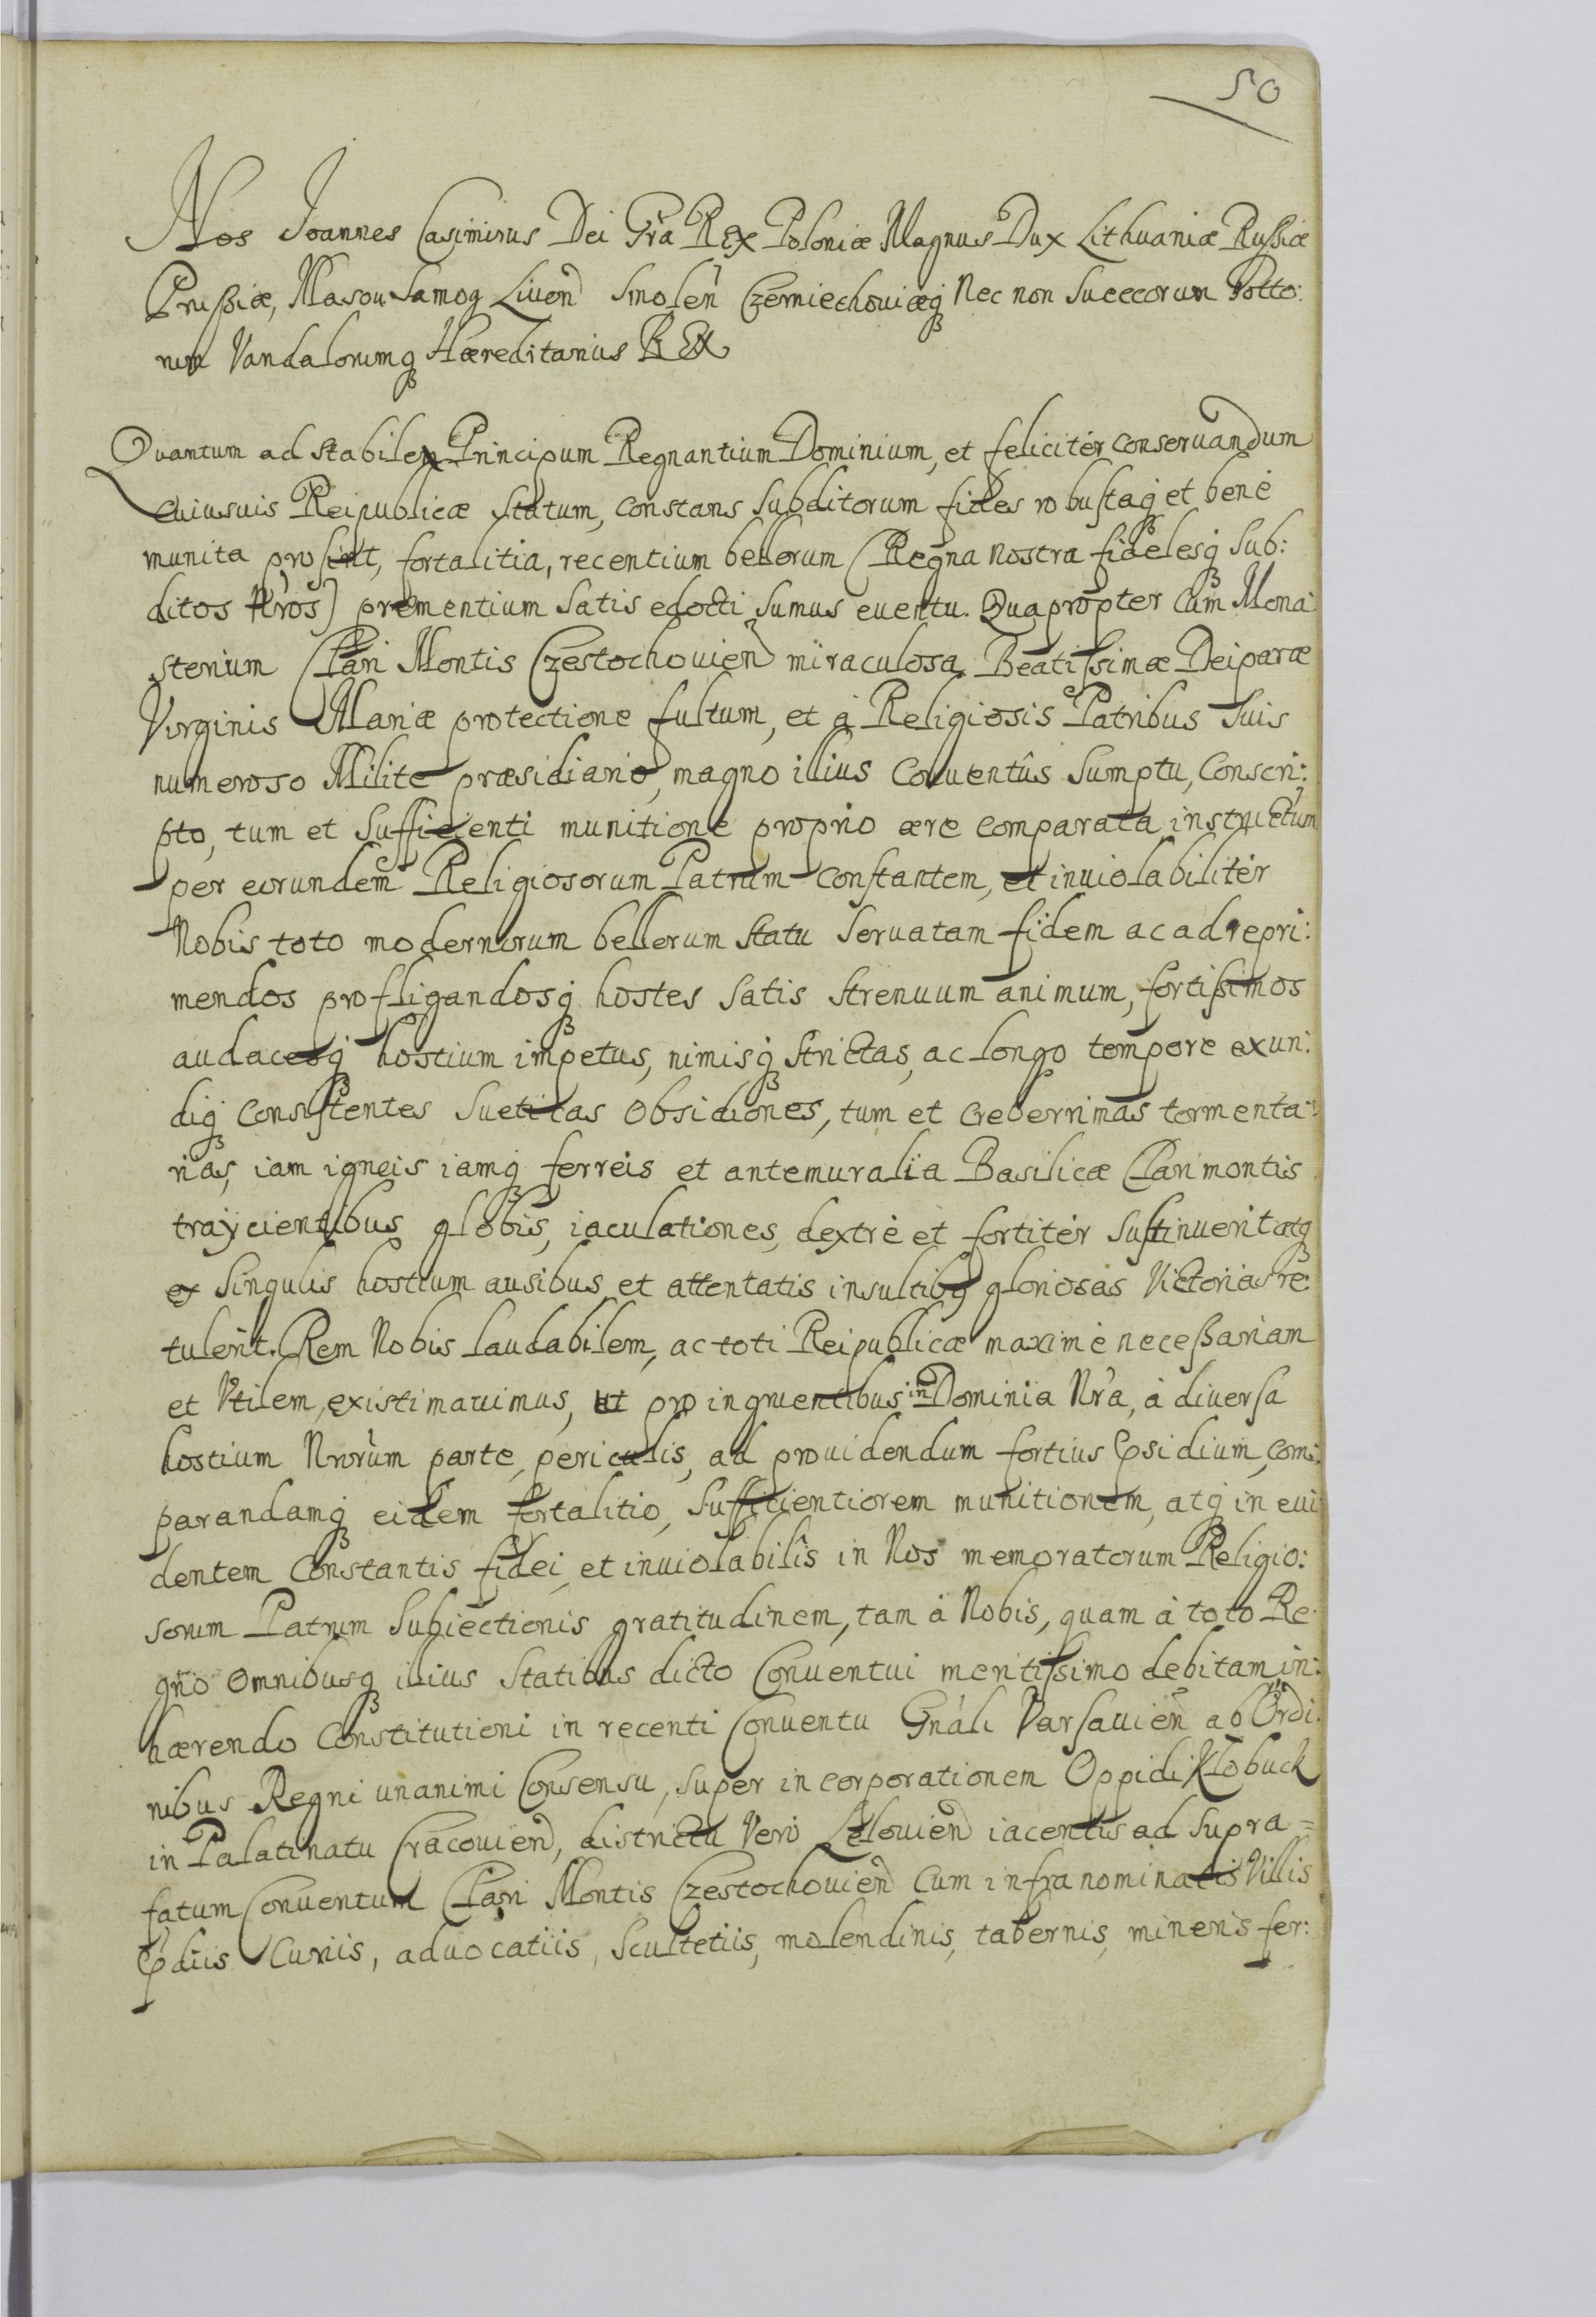 50
Nos Joannes Casimirus Dei Gra REX Poloniæ Magnus Dux Lithuaniæ Russiæ
Prussiæ, Masou Samog Liuen Smolen Czerniechouiæq Nec non Sueccorum Gotto:
rum Vandalorumq Hæreditarius REX
Quantum ad stabilem Principum Regnantium Dominium, et feliciter conseruandum
cuiusuis Reipublicæ statum, constans subditorum fides robustaq et bene
munita prosint, fortalitia, recentium bellorum (Regna nostra fidelesq Sub:
ditos Nros) prementium satis edocti sumus euentu. Quapropter Cum Mona:
sterium Clari Montis Czestochouien miraculosa Beatissimæ Deiparæ
Virginis Mariæ protectione fultum, et à Religiosis Patribus suis
numeroso Milite præsidiario, magno illius Conuentûs sumptu, Conscri:
pto, tum et sufficienti munitione proprio ære comparata instructum
per eorundem Religiosorum Patrum constantem, et inuiolabilitèr
Nobis toto modernorum bellorum statu seruatam fidem ac ad repri:
mendos profligandosq hostes satis strenuum animum, fortissimos
audacesq hostium impetus, nimisq strictas, ac longo tempore exun:
diq consistentes Sueticas obsidiones, tum et creberrimas tormenta:
rias, iam igneis iamq ferreis et antemuralia Basilicæ Clarimontis
traijcientibus globis, iaculationes, dextrè et fortitèr sustinuerit atq
ex singulis hostium ausibus et attentatis insultibq gloriosas Victorias re:
tulerit. Rem Nobis laudabilem, ac toti Reipublicæ maximè necessariam
et Vtilem, existimauimus, ut pro ingruentibus in Dominia Nra, à diuersa
hostium Nrorum parte, periculis, ad prouidendum fortius Psidium, com:
parandamq eidem fortalitio, sufficientiorem munitionem, atq in eui:
dentem Constantis fidei, et inuiolabilis in Nos memoratorum Religio:
sorum Patrum Subiectionis gratitudinem, tam à Nobis, quam à toto Re:
gno omnibusq illius Statibus dicto Conuentui meritissimo debitam in:
hærendo Constitutioni in recenti Conuentu Gnali Varsauien ab Ordi:
nibus Regni unanimi Consensu, super incorporationem Oppidi Klobuck
in Palatinatu Cracouien, districtu Vero Lelouien iacentis ad supra=
fatum Conuentum Clari Montis Czestochouien Cum infranominatis Villis
Pdiis Curiis, aduocatiis, Scultetiis, molendinis, tabernis, mineris fer: